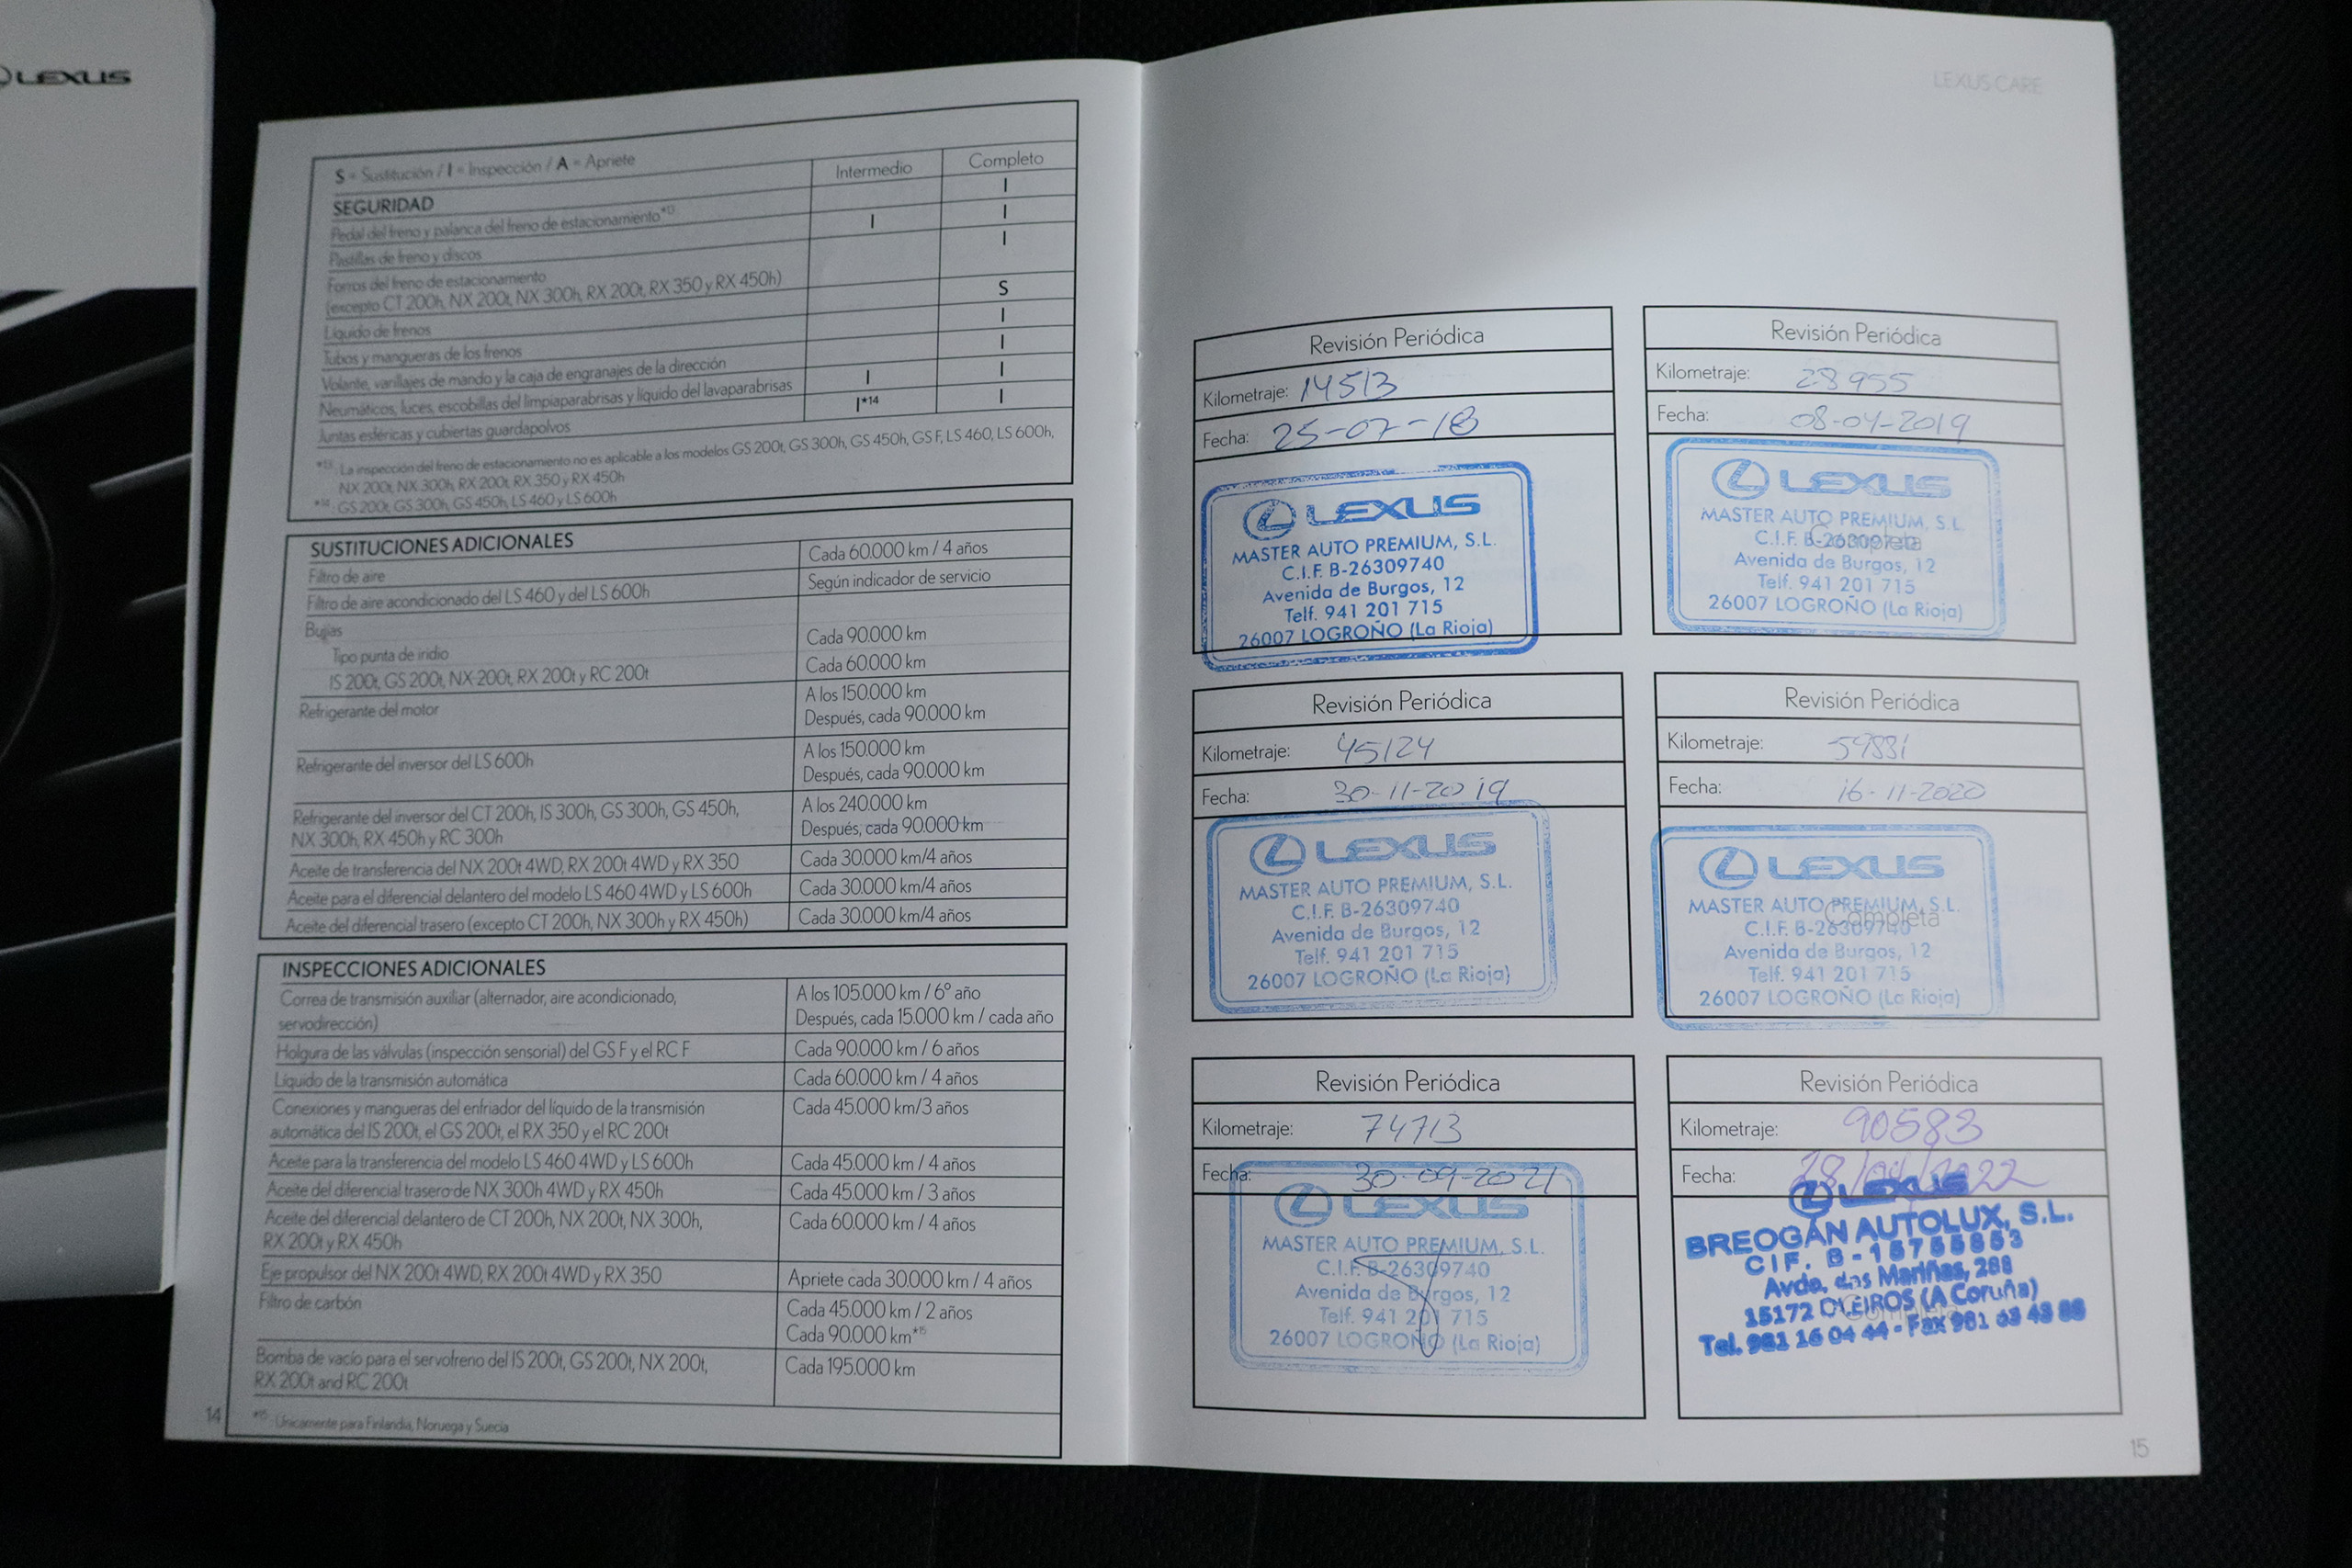 LEXUS
S = Sustitución / I = Inspección / A = Apriete
Intermedio
Completo
SEGURIDAD
I
Pedal del freno y palanca del freno de estacionamiento*13
I
I
Pastillas de freno y discos
I
Forros del freno de estacionamiento
(excepto CT 200h, NX 200t, NX 300h, RX 200t, RX 350 y RX 450h)
S
Líquido de frenos
I
Tubos y mangueras de los frenos
I
Volante, varillajes de mando y la caja de engranajes de la dirección
I
I
Neumáticos, luces, escobillas del limpiaparabrisas y líquido del lavaparabrisas
I*14
I
Juntas esféricas y cubiertas guardapolvos
*13: La inspección del freno de estacionamiento no es aplicable a los modelos GS 200t, GS 300h, GS 450h, GS F, LS 460, LS 600h,
NX 200t, NX 300h, RX 200t, RX 350 y RX 450h
*14: GS 200t, GS 300h, GS 450h, LS 460 y LS 600h
SUSTITUCIONES ADICIONALES
Filtro de aire
Cada 60.000 km / 4 años
Filtro de aire acondicionado del LS 460 y del LS 600h
Según indicador de servicio
Bujías
Tipo punta de iridio
Cada 90.000 km
IS 200t, GS 200t, NX 200t, RX 200t y RC 200t
Cada 60.000 km
Refrigerante del motor
A los 150.000 km
Después, cada 90.000 km
Refrigerante del inversor del LS 600h
A los 150.000 km
Después, cada 90.000 km
Refrigerante del inversor del CT 200h, IS 300h, GS 300h, GS 450h,
NX 300h, RX 450h y RC 300h
A los 240.000 km
Después, cada 90.000 km
Aceite de transferencia del NX 200t 4WD, RX 200t 4WD y RX 350
Cada 30.000 km/4 años
Aceite para el diferencial delantero del modelo LS 460 4WD y LS 600h
Cada 30.000 km/4 años
Aceite del diferencial trasero (excepto CT 200h, NX 300h y RX 450h)
Cada 30.000 km/4 años
INSPECCIONES ADICIONALES
Correa de transmisión auxiliar (alternador, aire acondicionado,
servodirección)
A los 105.000 km / 6º año
Después, cada 15.000 km / cada año
Holgura de las válvulas (inspección sensorial) del GS F y el RC F
Cada 90.000 km / 6 años
Líquido de la transmisión automática
Cada 60.000 km / 4 años
Conexiones y mangueras del enfriador del líquido de la transmisión
automática del IS 200t, el GS 200t, el RX 350 y el RC 200t
Cada 45.000 km/3 años
Aceite para la transferencia del modelo LS 460 4WD y LS 600h
Cada 45.000 km / 4 años
Aceite del diferencial trasero de NX 300h 4WD y RX 450h
Cada 45.000 km / 3 años
Aceite del diferencial delantero de CT 200h, NX 200t, NX 300h,
RX 200t y RX 450h
Cada 60.000 km / 4 años
Eje propulsor del NX 200t 4WD, RX 200t 4WD y RX 350
Apriete cada 30.000 km / 4 años
Filtro de carbón
Cada 45.000 km / 2 años
Cada 90.000 km*15
Bomba de vacío para el servofreno del IS 200t, GS 200t, NX 200t,
RX 200t and RC 200t
Cada 195.000 km
*15: Únicamente para Finlandia, Noruega y Suecia
14
LEXUS CARE
Revisión Periódica
Kilometraje: 14513
Fecha: 25-07-18
LEXUS
MASTER AUTO PREMIUM, S.L.
C.I.F. B-26309740
Avenida de Burgos, 12
Telf. 941 201 715
26007 LOGROÑO (La Rioja)
Revisión Periódica
Kilometraje: 28955
Fecha: 08-04-2019
LEXUS
MASTER AUTO PREMIUM, S.L.
C.I.F. B-26309740
Completa
Avenida de Burgos, 12
Telf. 941 201 715
26007 LOGROÑO (La Rioja)
Revisión Periódica
Kilometraje: 45124
Fecha: 30-11-2019
LEXUS
MASTER AUTO PREMIUM, S.L.
C.I.F. B-26309740
Avenida de Burgos, 12
Telf. 941 201 715
26007 LOGROÑO (La Rioja)
Revisión Periódica
Kilometraje: 59881
Fecha: 16-11-2020
LEXUS
MASTER AUTO PREMIUM, S.L.
Completa
C.I.F. B-26309740
Avenida de Burgos, 12
Telf. 941 201 715
26007 LOGROÑO (La Rioja)
Revisión Periódica
Kilometraje: 74713
Fecha: 30-09-2021
LEXUS
MASTER AUTO PREMIUM, S.L.
C.I.F. B-26309740
Avenida de Burgos, 12
Telf. 941 201 715
26007 LOGROÑO (La Rioja)
Revisión Periódica
Kilometraje: 90583
Fecha:
LEXUS
BREOGÁN AUTOLUX, S.L.
CIF. B-15755853
Avda. das Mariñas, 288
15172 OLEIROS (A Coruña)
Completa
Tel. 981 16 04 44 - Fax 981 63 48 88
15